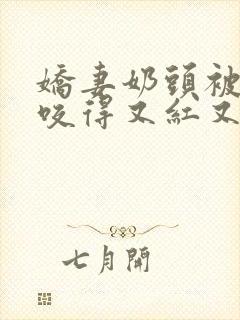 嬌妻奶頭被
咬得又紅又
七月開